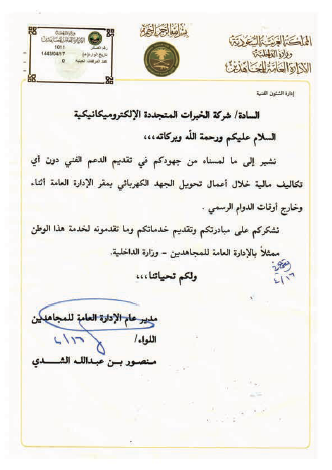 بسم الله الرحمن الرحيم
المملكة العربية السعودية
وزارة الداخلية
الإدارة العامة للمجاهدين
إدارة الشئون الفنية
السادة/ شركة الخبرات المتجددة الإلكتروميكانيكية
السلام عليكم ورحمة الله وبركاته،،،
نشير إلى ما لمسناه من جهودكم في تقديم الدعم الفني دون أي
تكاليف مالية خلال أعمال تحويل الجهد الكهربائي بمقر الإدارة العامة أثناء
وخارج أوقات الدوام الرسمي .
نشكركم على مبادرتكم وتقديم خدماتكم وما تقدمونه لخدمة هذا الوطن
ممثلاً بالإدارة العامة للمجاهدين – وزارة الداخلية.
ولكم تحياتنا،،،
مدير عام الإدارة العامة للمجاهدين
اللواء/
منصور بن عبدالله الشدي